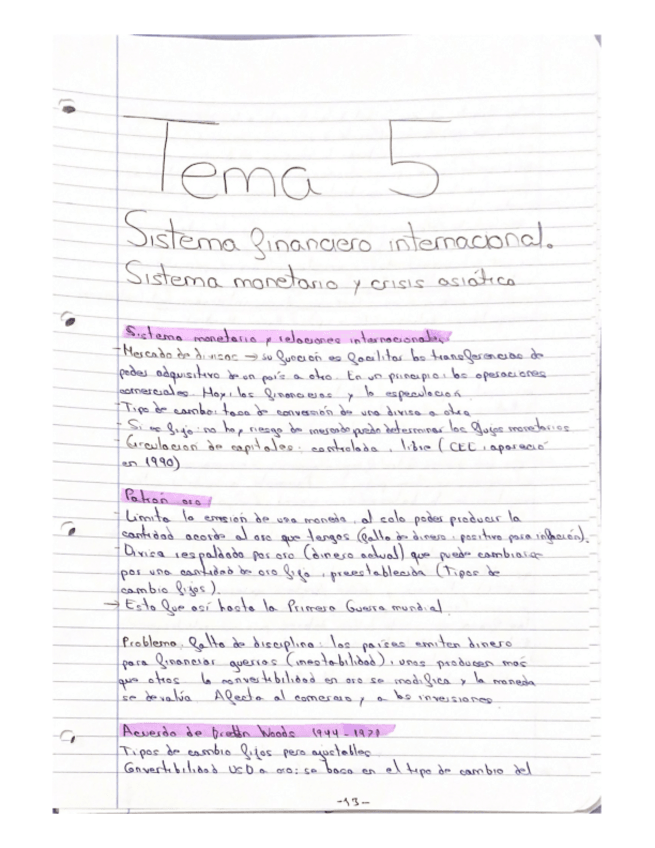 Tema 5
Sistema financiero internacional.
Sistema monetario y crisis asiática
Sistema monetario y relaciones internacionales
- Mercado de divisas → su función es facilitar las transferencias de
poder adquisitivo de un país a otro. En un principio: las operaciones
comerciales. Hoy: las financieras y la especulación
- Tipo de cambio: tasa de conversión de una divisa a otra
- Si es fijo: no hay riesgo de mercado puede determinar los flujos monetarios
- Circulación de capitales: controlada, libre (CEE, apareció
en 1990)
Patrón oro
- Limita la emisión de una moneda, al solo poder producir la
cantidad acorde al oro que tengas (falta de dinero, positivo para inflación).
- Divisa respaldada por oro (dinero actual) que puede cambiarse
por una cantidad de oro fija, preestablecida (Tipos de
cambio fijos).
→ Esto fue así hasta la Primera Guerra mundial.
Problema: falta de disciplina: los países emiten dinero
para financiar guerras (inestabilidad), unos producen más
que otros la convertibilidad en oro se modifica y la moneda
se devalúa. Afecta al comercio y a las inversiones
Acuerdo de Bretton Woods 1944-1971
Tipos de cambio fijos pero ajustables
Convertibilidad USD a oro: se basa en el tipo de cambio del
-13-